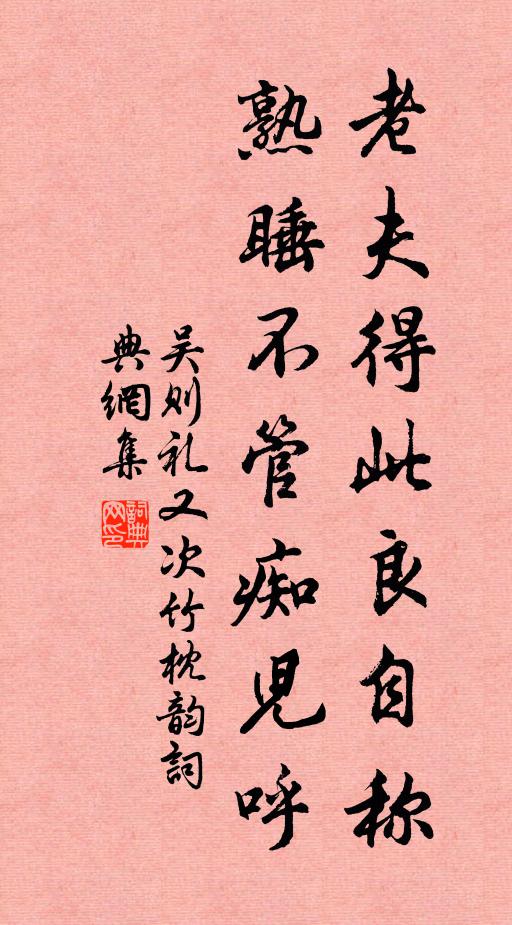 老夫得此良自称
熟睡不管痴児呼
吴则礼又次竹枕韵詞
典網集
詞典网印